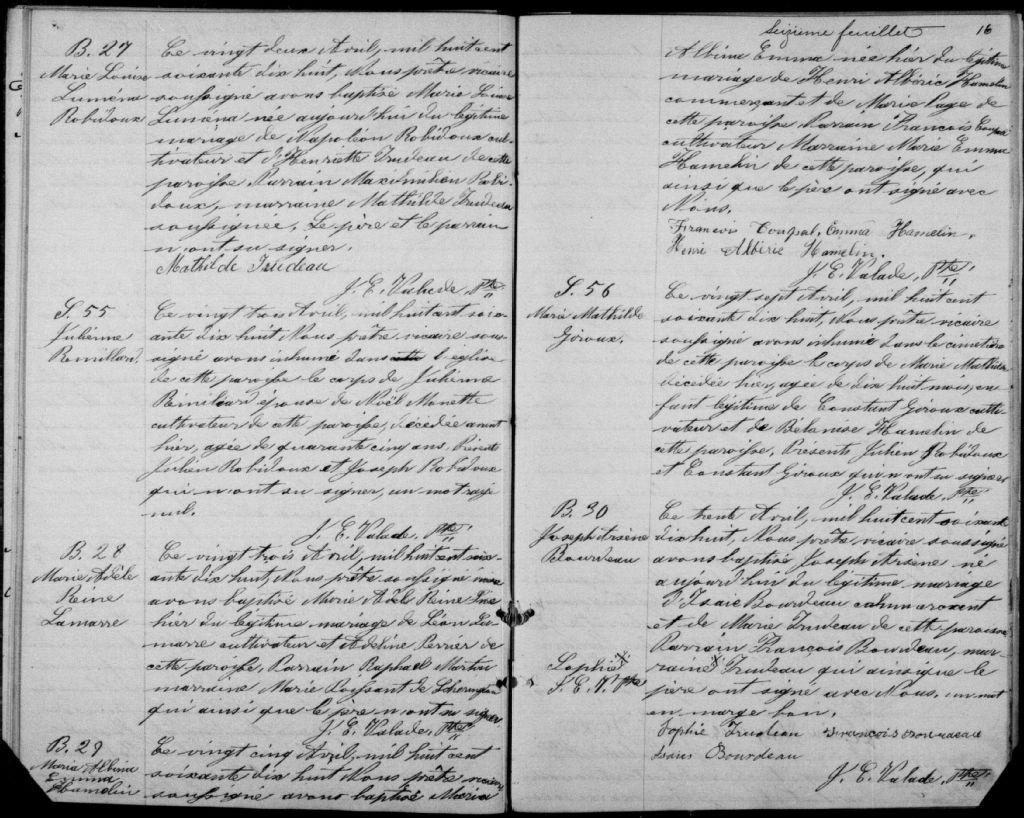 B. 27
Marie Louise
Luména
Robidoux
Ce vingt deux Avril, mil huit cent
soixante dix huit, Nous prêtre vicaire
soussigné avons baptisé Marie Louise
Luména née aujourd'hui du légitime
mariage de Napoléon Robidoux cul-
tivateur et d'Henriette Trudeau de cette
paroisse. Parrain Maximilien Robi-
doux, marraine Mathilde Trudeau
soussignée. Le père et le parrain
n'ont su signer.
Mathilde Trudeau
J. E. Valade, Ptre
S. 55
Julienne
Remillard.
Ce vingt trois Avril, mil huit cent soix-
ante dix huit Nous prêtre vicaire sous-
signé avons inhumé dans cette l'église
de cette paroisse le corps de Julienne
Remillard épouse de Noël Monette
cultivateur de cette paroisse, décédée avant
hier, agée de quarante cinq ans. Présents
Julien Robidoux et Joseph Robidoux
qui n'ont su signer, un mot rayé
nul.
J. E. Valade, Ptre
B. 28
Marie Adèle
Reine
Lamarre
Ce vingt trois Avril, mil huit cent soix-
ante dix huit, Nous prêtre soussigné vicaire
avons baptisé Marie Adèle Reine née
hier du légitime mariage de Léon La-
marre cultivateur et Adeline Perrier de
cette paroisse, Parrain Raphael Martin
marraine Marie Poissant de Sherrington
qui ainsi que le père n'ont su signer
J. E. Valade, Ptre
B. 29
Maria Albina
Emma
Hamelin
Ce vingt cinq Avril, mil huit cent
soixante dix huit Nous prêtre vicaire
soussigné avons baptisé Maria
Seizième feuillet
16
Albina Emma née hier du légitime
mariage de Henri Albéric Hamelin
commerçant et de Marie Page de
cette paroisse Parrain François Coupal
cultivateur Marraine Marie Emma
Hamelin de cette paroisse, qui
ainsi que le père ont signé avec
Nous.
Francois Coupal, Emma Hamelin.
Henri Albérie Hamelin.
J. E. Valade, Ptre
S. 56
Marie Mathilde
Giroux.
Ce vingt sept Avril, mil huit cent
soixante dix huit, Nous prêtre vicaire
soussigné avons inhumé dans le cimetière
de cette paroisse le corps de Marie Mathilde
décédée hier, agée de dix huit mois, en-
fant légitime de Constant Giroux culti-
vateur et de Hamelin de
cette paroisse, Présents Julien Robidoux
et Constant Giroux qui n'ont su signer
J. E. Valade, Ptre
B. 30
Joseph Arsène
Bourdeau
Ce trente Avril, mil huit cent soixante
dix huit, Nous prêtre, vicaire soussigné
avons baptisé Joseph Arsène né
aujourd'hui du légitime mariage
d'Isaie Bourdeau
et de Marie Trudeau de cette paroisse
Parrain François Bourdeau, mar-
raine X Trudeau qui ainsi que le
père ont signé avec Nous, un mot
en marge bon.
Sophie X
J. E. V. Ptre
Sophie Trudeau François Bourdeau
Isaïe Bourdeau
J. E. Valade, Ptre